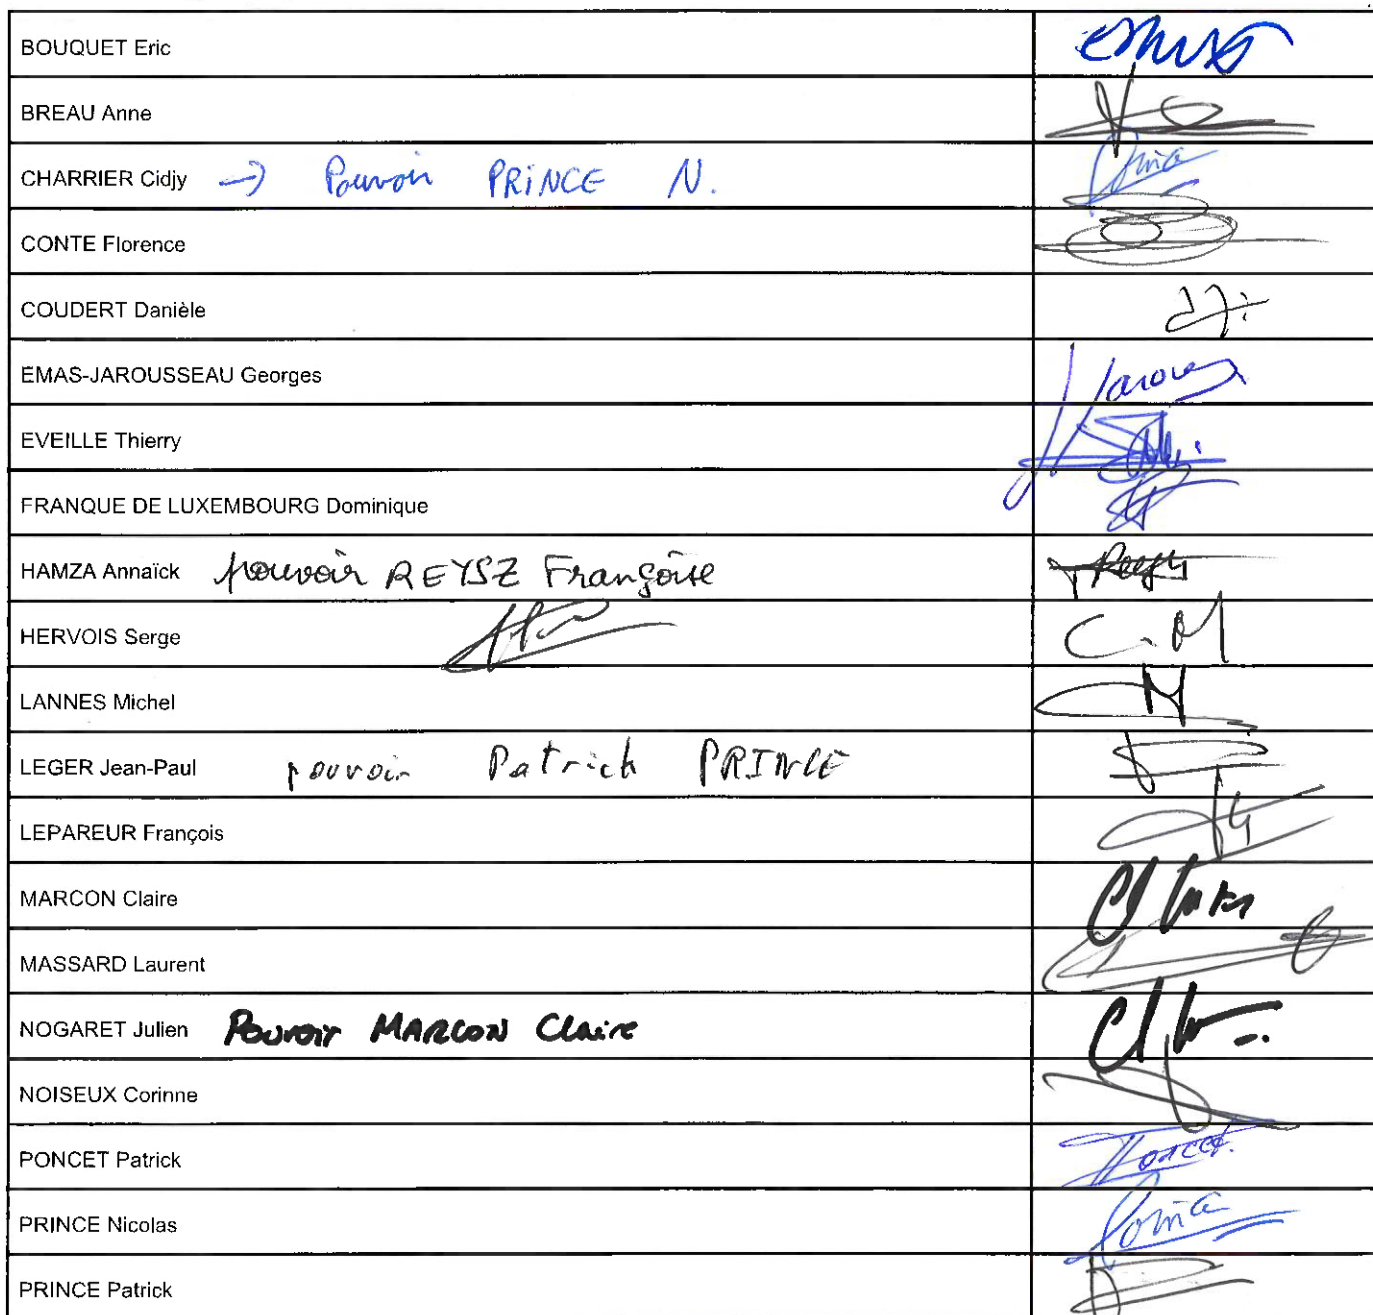 BOUQUET Eric
BREAU Anne
CHARRIER Cidjy → Pouvoir PRINCE N.
CONTE Florence
COUDERT Danièle
EMAS-JAROUSSEAU Georges
EVEILLE Thierry
FRANQUE DE LUXEMBOURG Dominique
HAMZA Annaïck pouvoir REYSZ Françoise
HERVOIS Serge
LANNES Michel
LEGER Jean-Paul pouvoir Patrick PRINCE
LEPAREUR François
MARCON Claire
MASSARD Laurent
NOGARET Julien Pouvoir MARCON Claire
NOISEUX Corinne
PONCET Patrick Poncet
PRINCE Nicolas
PRINCE Patrick